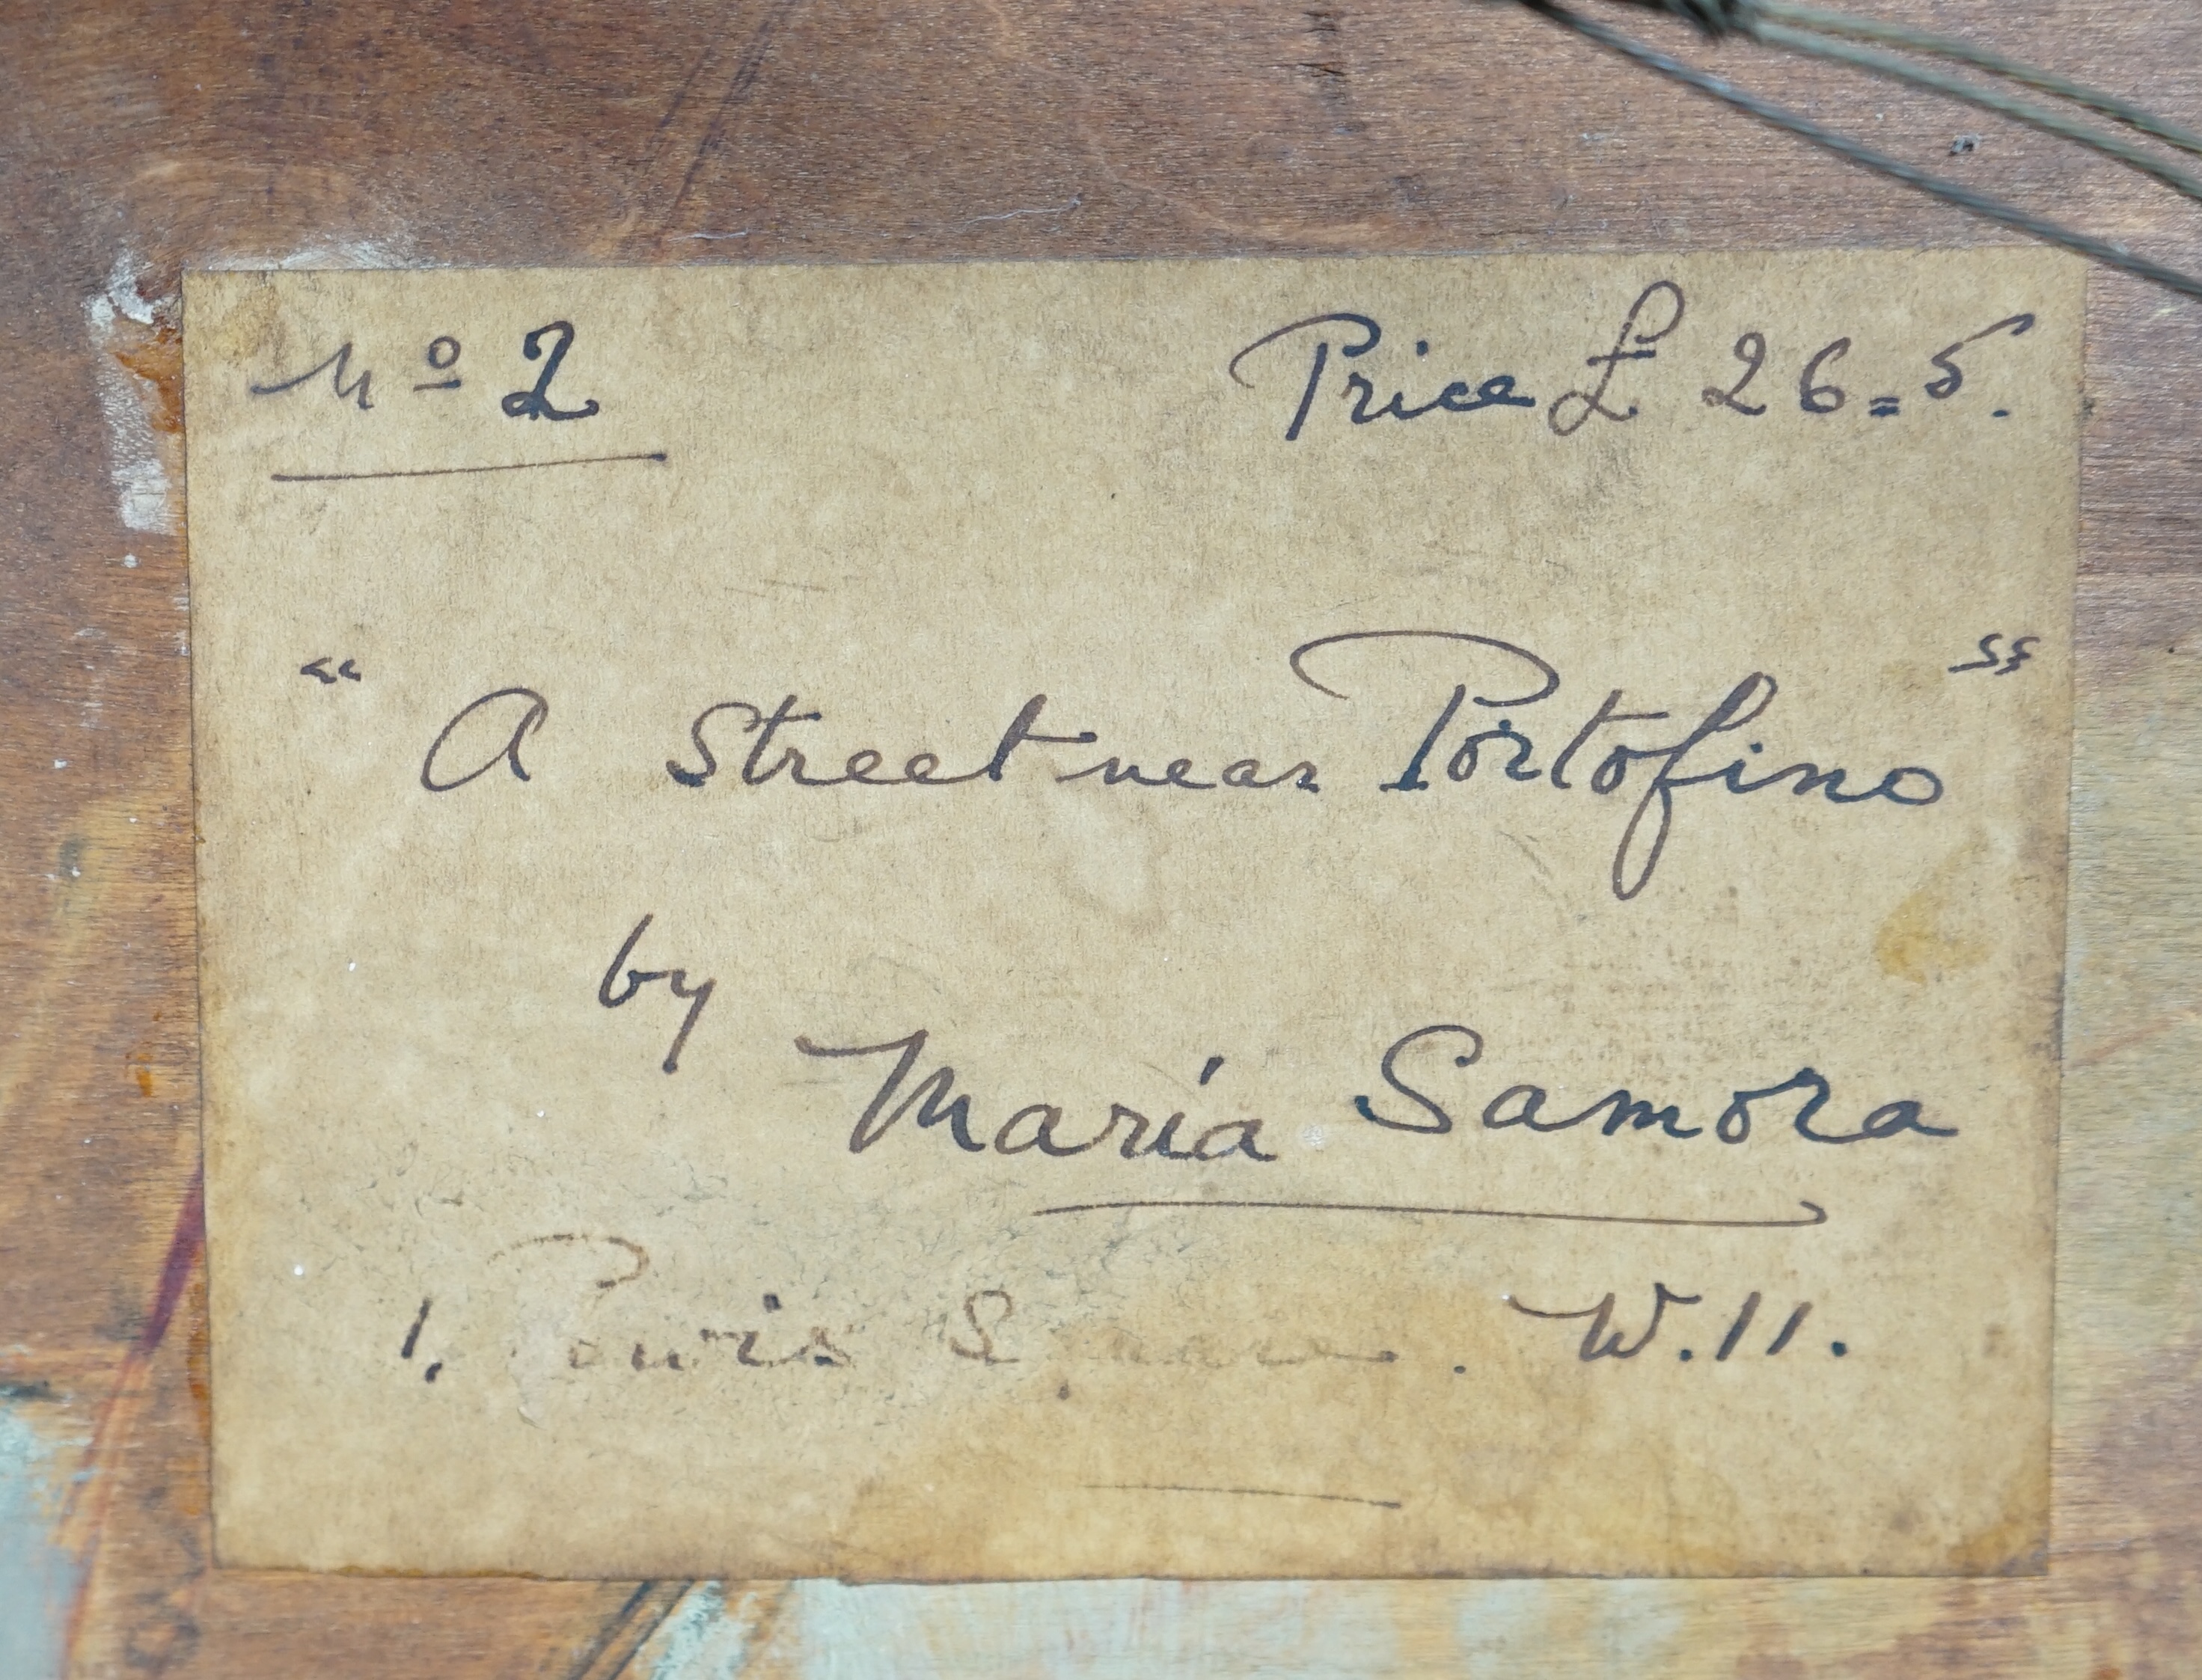 Nº 2 Price £ 26=5.
“A Street near Portofino”
by
Maria Samora
1. Powis S . W.11.